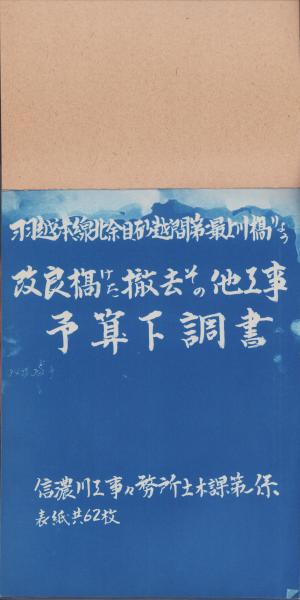 羽越本線北余目砂越間第二最上川橋りょう
改良橋けた撤去その他工事
予算下調書
信濃川工事々務所土木課第一係
表紙共62枚